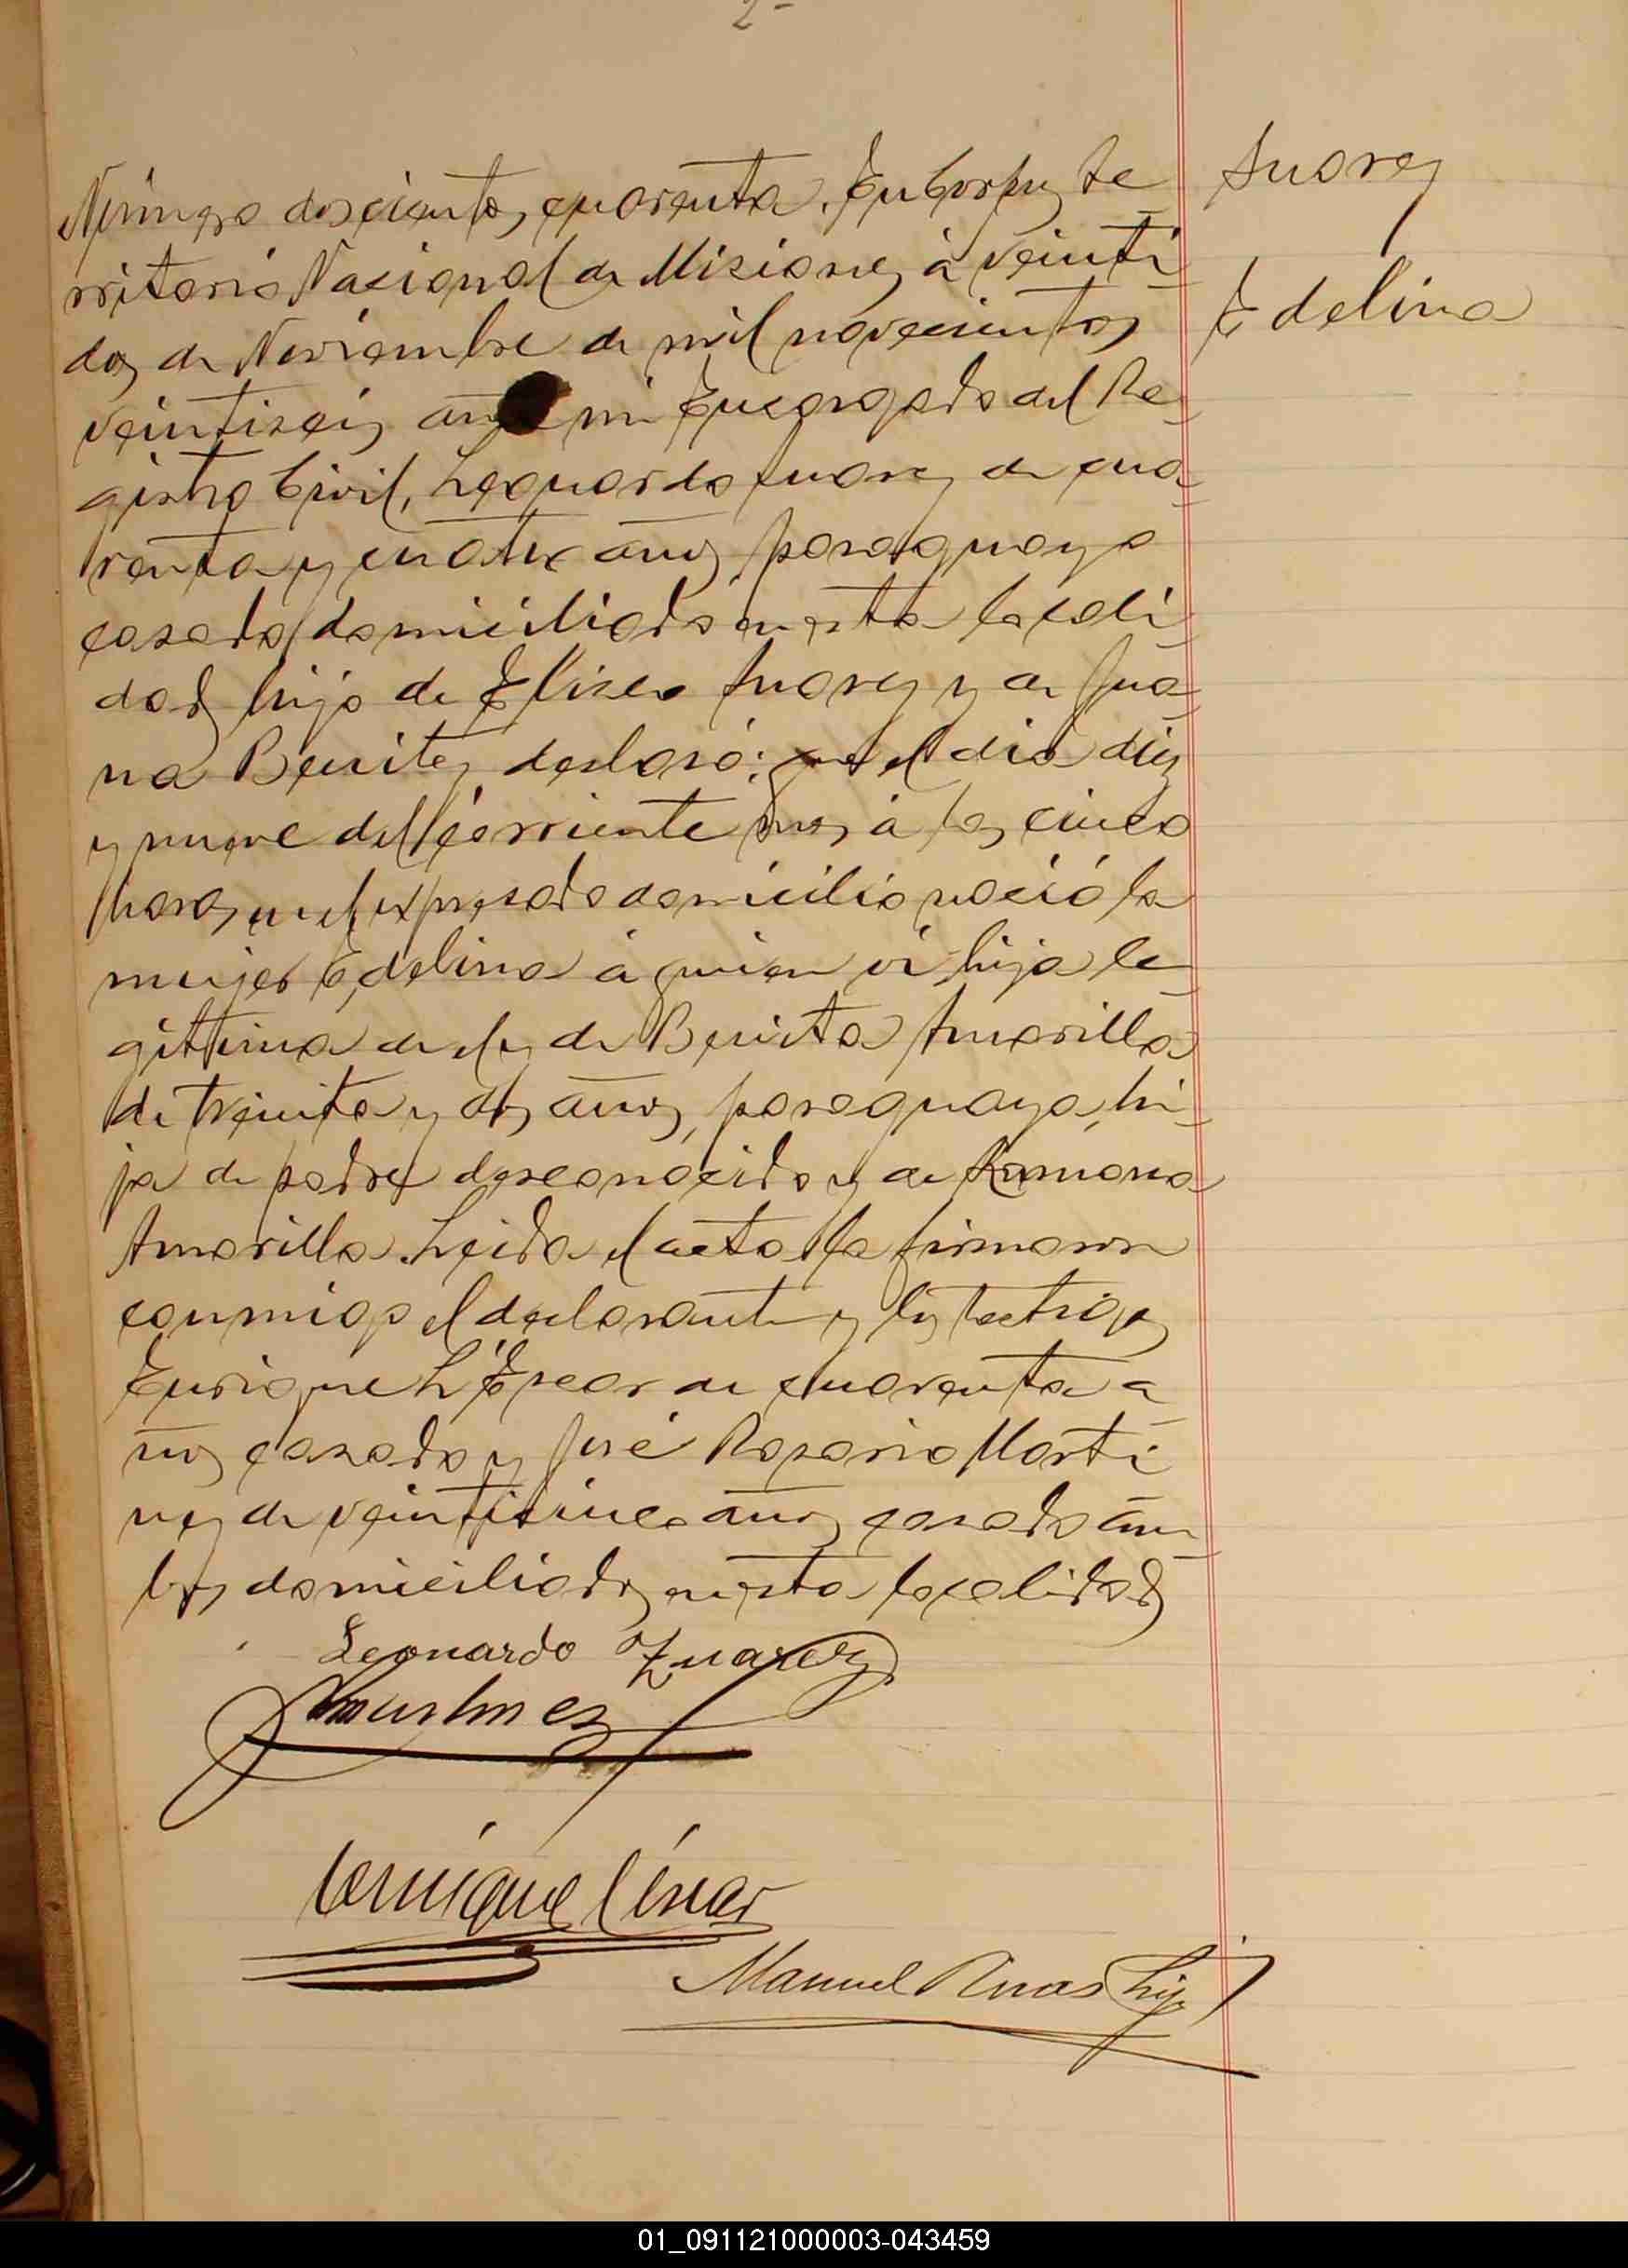 2-
Suarez
Edelina
Número doscientos cuarenta. En Corpus te-
rritorio Nacional de Misiones á veinti-
dos de Noviembre de mil novecientos
veintiseis ante mi Encargado del Re-
gistro Civil, Leonardo Suarez de cua-
renta y cuatro años, paraguayo
casado domiciliado en esta locali-
dad hijo de Eliseo Suarez y de Jua-
na Benitez declaró: que el dia diez
y nueve del corriente mes á las cinco
horas en el expresado domicilio nació la
mujer Edelina á quien vi hija le-
gitima de el y de Benita Amarilla
de treinta y dos años, paraguaya, hi-
ja de padre desconocido y de Ramona
Amarilla. Leida el acta la firmaron
conmigo el declarante y los testigos
Enrique L'Epear de cuarenta a-
ños casado y José Rosario Marti-
nez de veinticinco años casado am-
bos domiciliados en esta localidad
Leonardo Zuarez
Enrique César
Manuel Rivas hijo
01_091121000003-043459